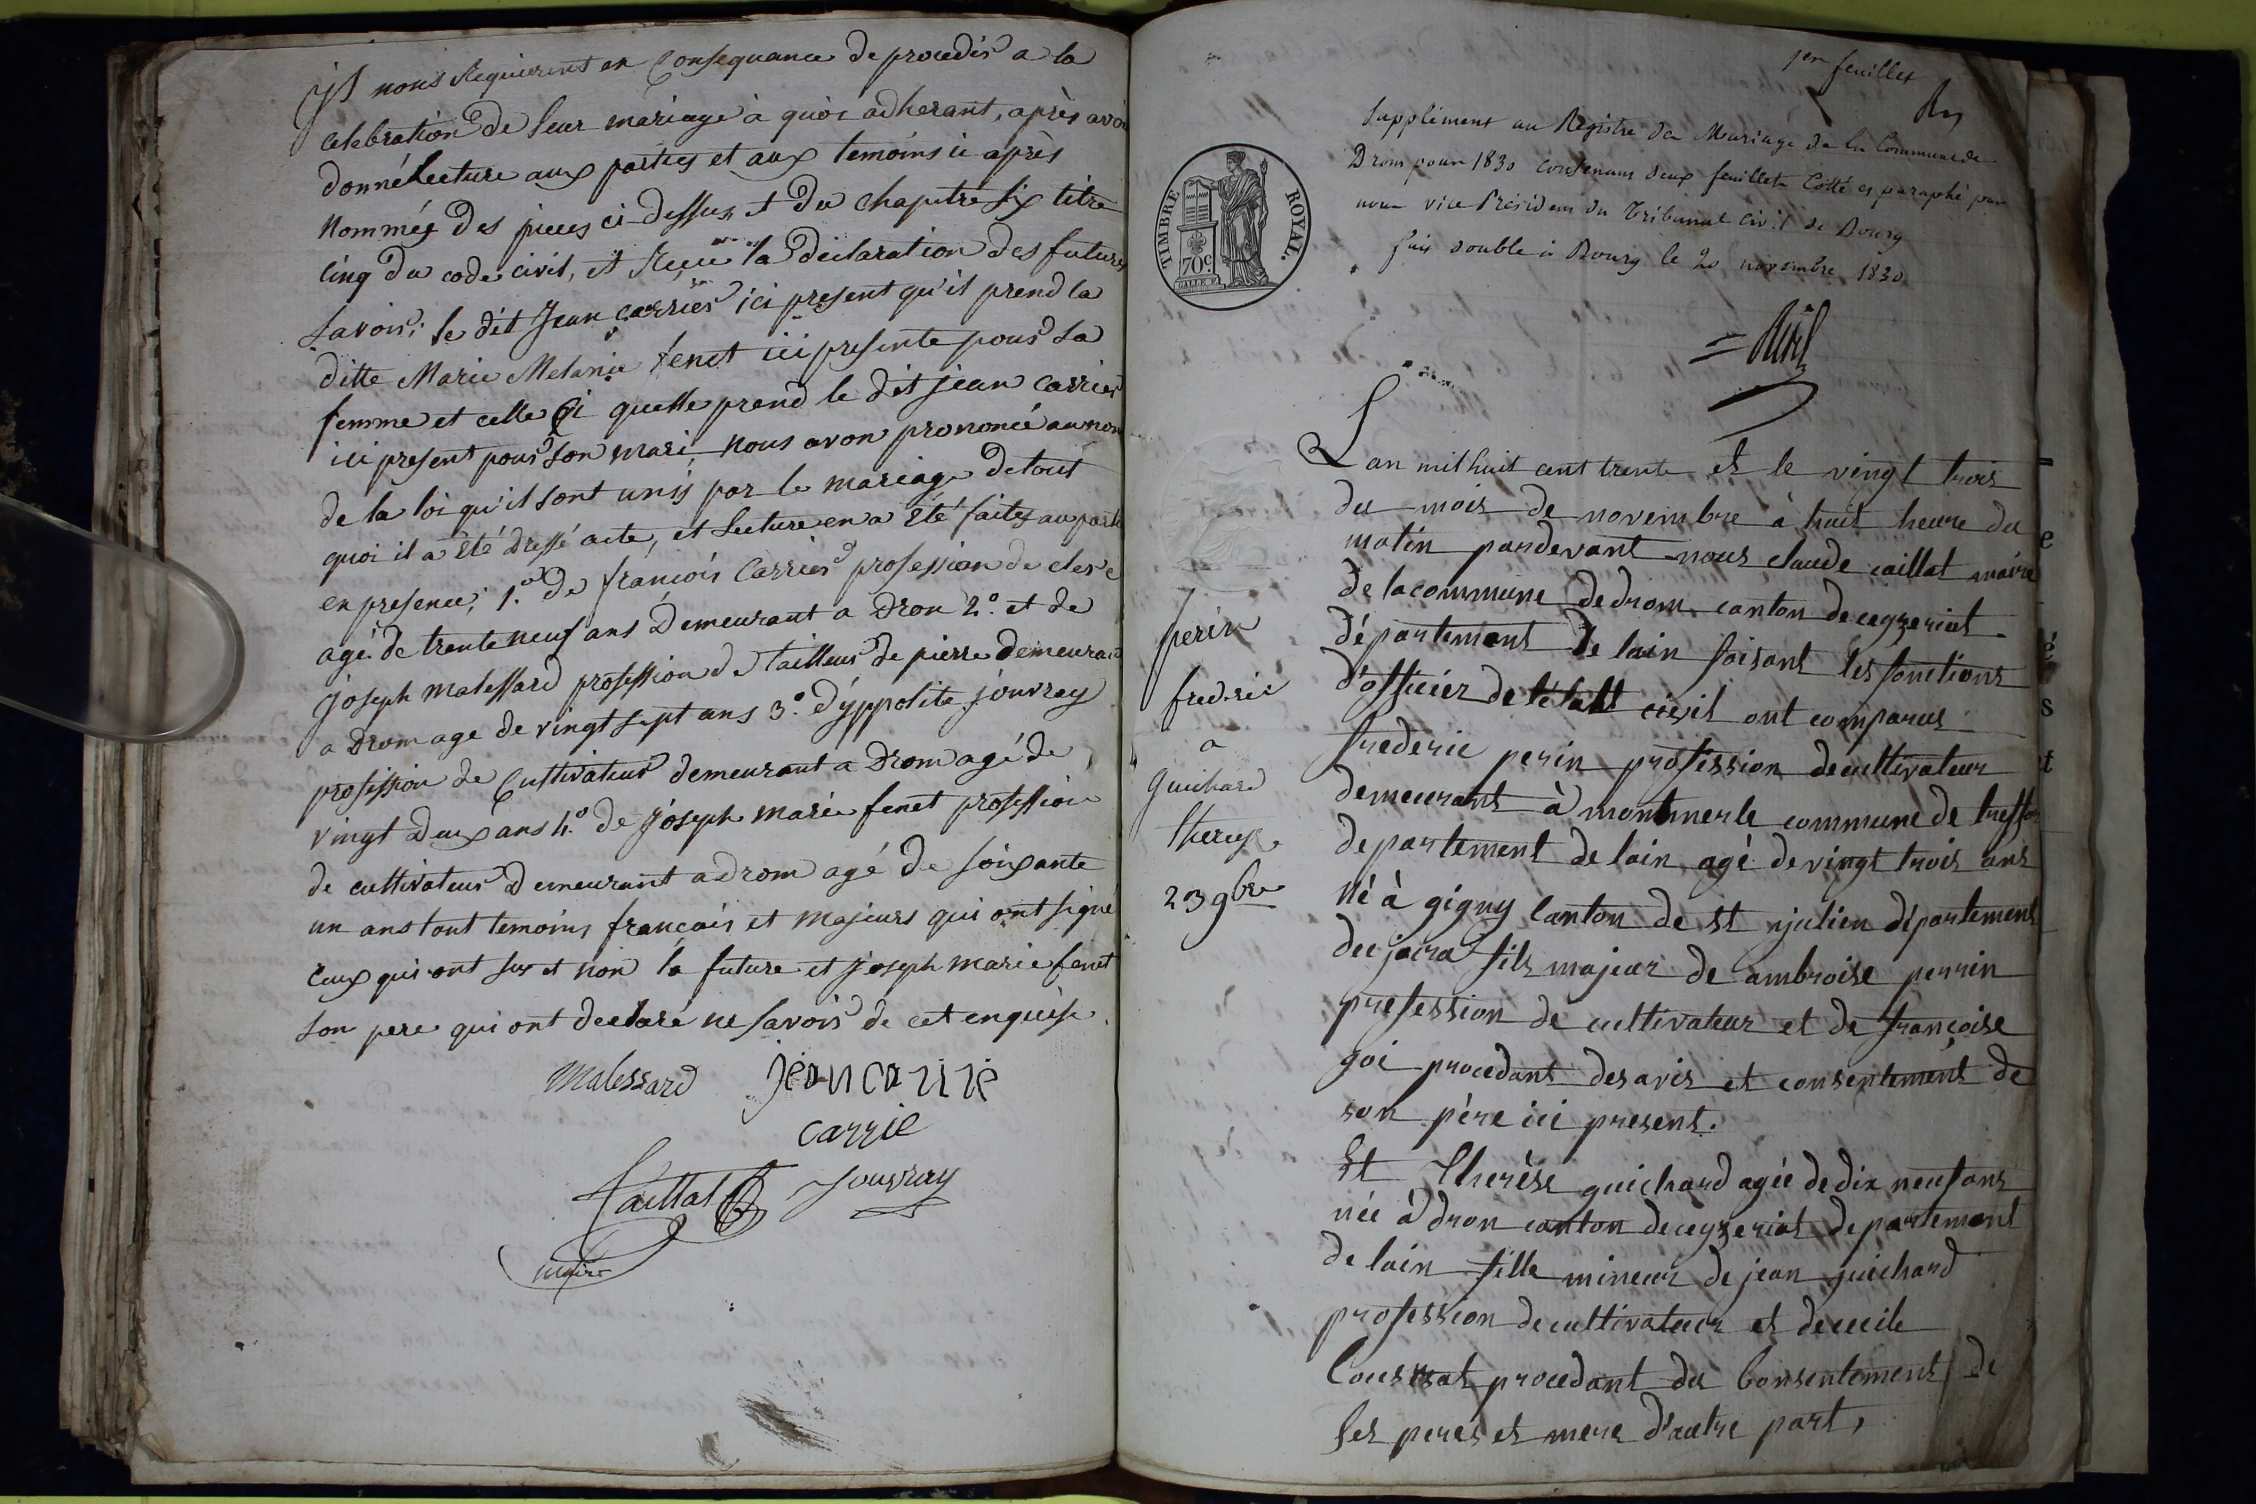 ils nous Requierent en Consequance de proceder a la
celebration de leur mariage à quoi adherant, après avoi
donné Lecture aux parties et aux temoins ci après
Nommés des pieces ci dessus et du chapitre six titre
cinq du code civil, et Reçue la déclaration des futurs
savoir; le dit Jean carrier ici present qu'il prend la
ditte Marie Melanie fenet ici presente pour sa
femme et celle ci quelle prend le dit jean carrier
ici present pour son mari, nous avon prononcé au nom
de la loi qu'il sont unis par le mariage de tout
quoi il a été dressé acte, et lecture en a été faites au parti
en presence; 1.º de françois Carrier profession de clerc
agé de trente neuf ans Demeurant a Drom 2.º et de
joseph malessard profession de tailleur de pierre demeurant
a Drom age de vingt sept ans 3.º d'yppolite jouvray
profession de Cultivateur demeurant a Drom agé de
vingt Deux ans 4.º de joseph marie fenet profession
de cultivateur Demeurant a drom agé de soixante
un ans tout temoins français et majeurs qui ont signé
Ceux qui ont su et non la future et joseph marie fenet
son pere qui ont declaré ne savoir de cet enquise.
malessard jean carrié
carrié
Caillat jouvray
maire
1er feuillet
Supplément au Registre de Mariage de la Commune de
Drom pour 1830 contenant deux feuillets Cotté et paraphé par
nous vice Président du Tribunal Civil de Bourg
fait double à Bourg le 20 novembre 1830
TIMBRE ROYAL.
70c.
Lan mil huit cent trente et le vingt trois
du mois de novembre à huit heure du
matin pardevant nous claude caillat maire
de la commune de drom canton de ceyzeriat
département de lain faisant les fonctions
d'officier de l'état civil ont comparus
frederic perin profession de cultivateur
demeurant à montmerle commune de treffor
departement de lain agé de vingt trois ans
né à gigny canton de st julien département
du jura fils majeur de ambroise perrin
profession de cultivateur et de françoise
goi procedant des avis et consentement de
son père ici present.
Et Therèse guichard agée de dix neuf ans
née à dron canton de ceyzeriat departement
de lain fille mineur de jean guichard
profession de cultivateur et de cecile
procedant du Consentement de
ses peres et mere d'autre part,
perin
frederic
a
guichard
therese
23 9bre